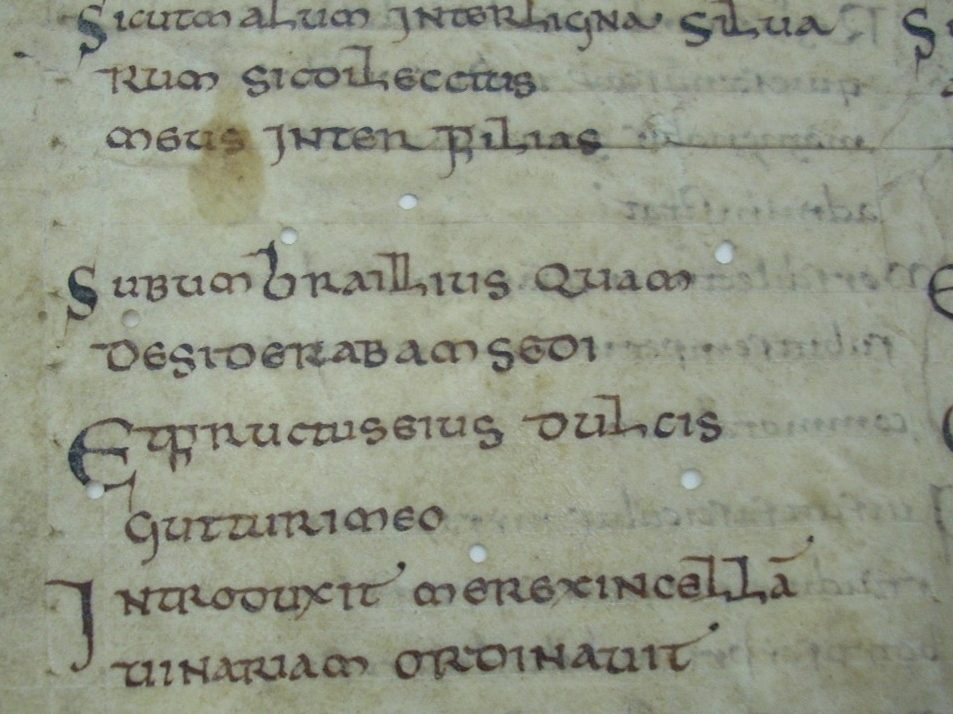 Sicutmalum interligna silua
rum sicdilectus
meus inter filias
Subumbraillius quam
desiderabamsedi
Etfructuseius dulcis
gutturimeo
Introduxit merexincellā
uinariam ordinauit